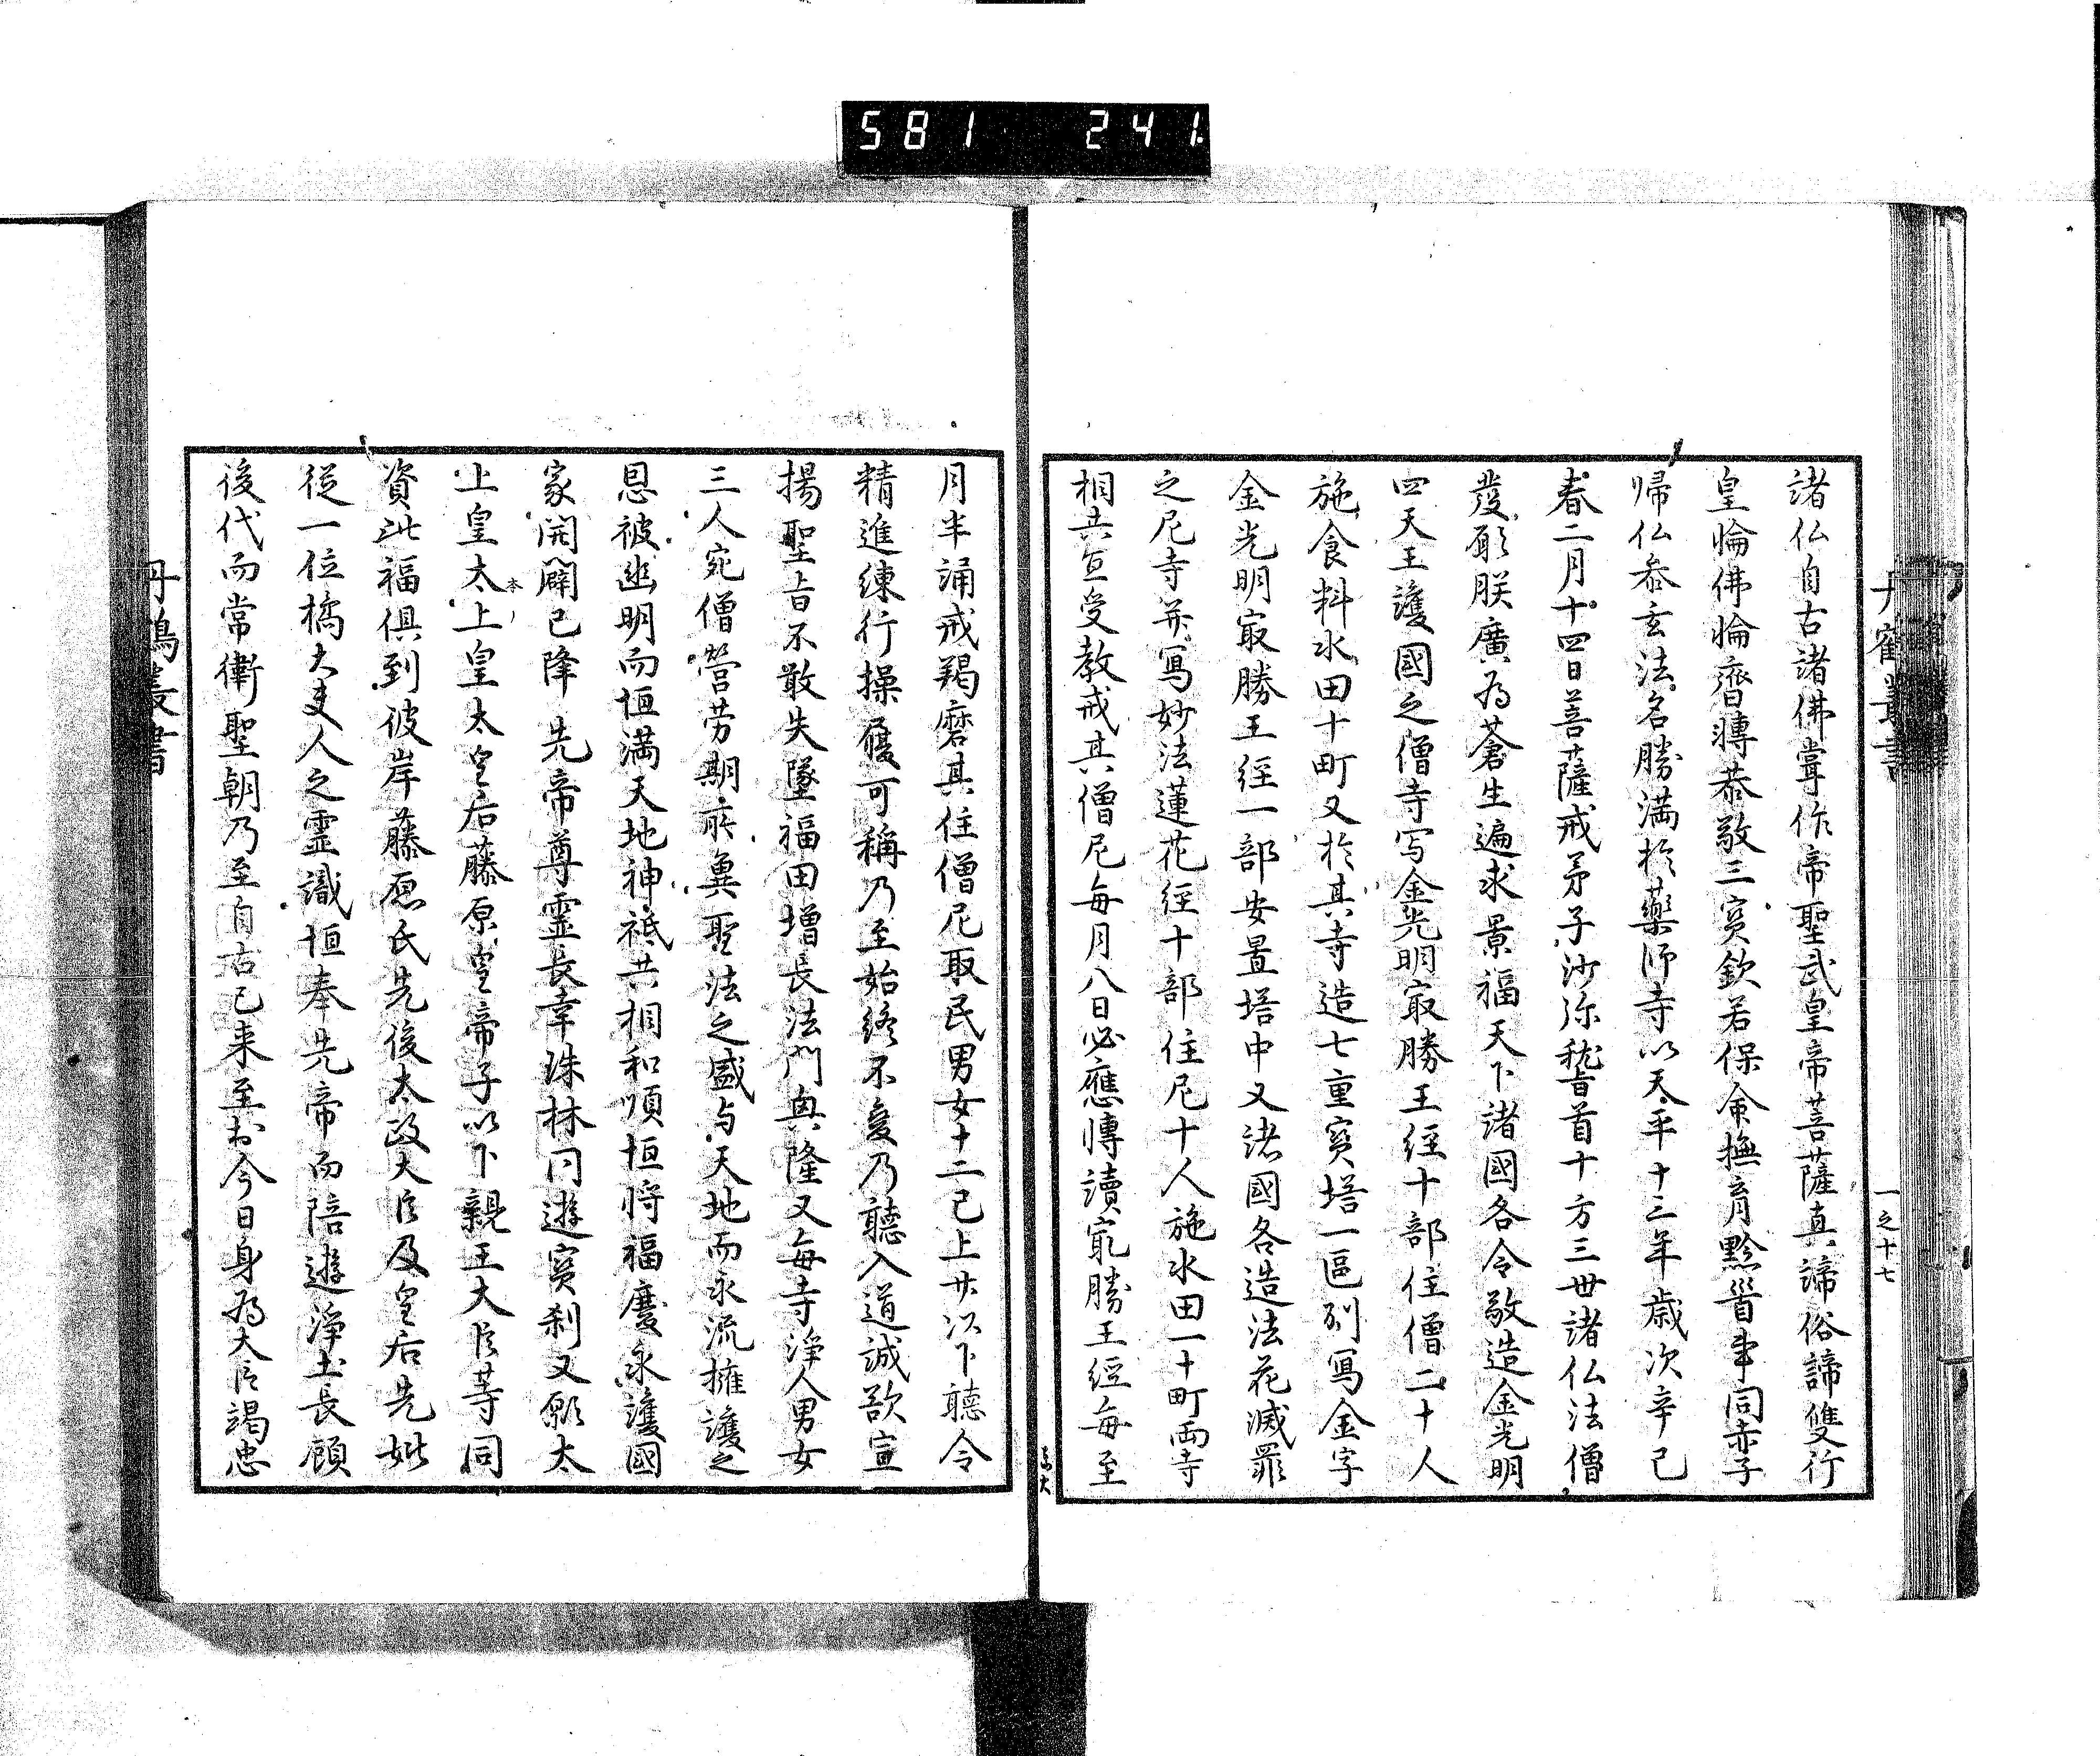 581 241
丹鶴叢書
一之十七
諸仏自古諸佛嘗作帝聖武皇帝菩薩真諦俗諦雙行
皇悕佛悕齊轉恭敬三宝欽若保命撫育黔首事同赤子
帰仏叅玄法名勝満於藥师寺以天平十三年歳次辛已
春二月十四日菩薩戒弟子沙弥稽首十方三世諸仏法僧
發願朕廣為蒼生遍求景福天下諸國各令敬造金光明
四天王護國之僧寺写金光明冣勝王経十部住僧二十人
施食料水田十町又於其寺造七重宝塔一區別冩金字
金光明冣勝王経一部安置塔中又諸國各造法花滅罪
之尼寺并冩妙法蓮花経十部住尼十人施水田一十町両寺
相共宜受教戒其僧尼每月八日必應轉讀冣勝王経每至
月半誦戒羯磨其住僧尼取民男女十二已上廿以下聽令
精進練行操履可稱乃至始終不変乃聽入道誠欲宣
揚聖旨不敢失墜福田增長法門興隆又每寺淨人男女
三人宛僧營劳期所冀聖法之盛与天地而永流擁護之
恩被幽明而恒満天地神祇共相和順恒将福慶永護國
家開闢已降先帝尊霊長幸珠林同遊宝刹又願太
上皇太上皇太皇后藤原皇帝子以下親王大臣等同
資此福俱到彼岸藤原氏先後太政大臣及皇后先妣
従一位橘大夫人之霊識恒奉先帝而陪遊淨土長顧
後代而常衛聖朝乃至自古已来至於今日身為大臣竭忠
丹鶴叢書